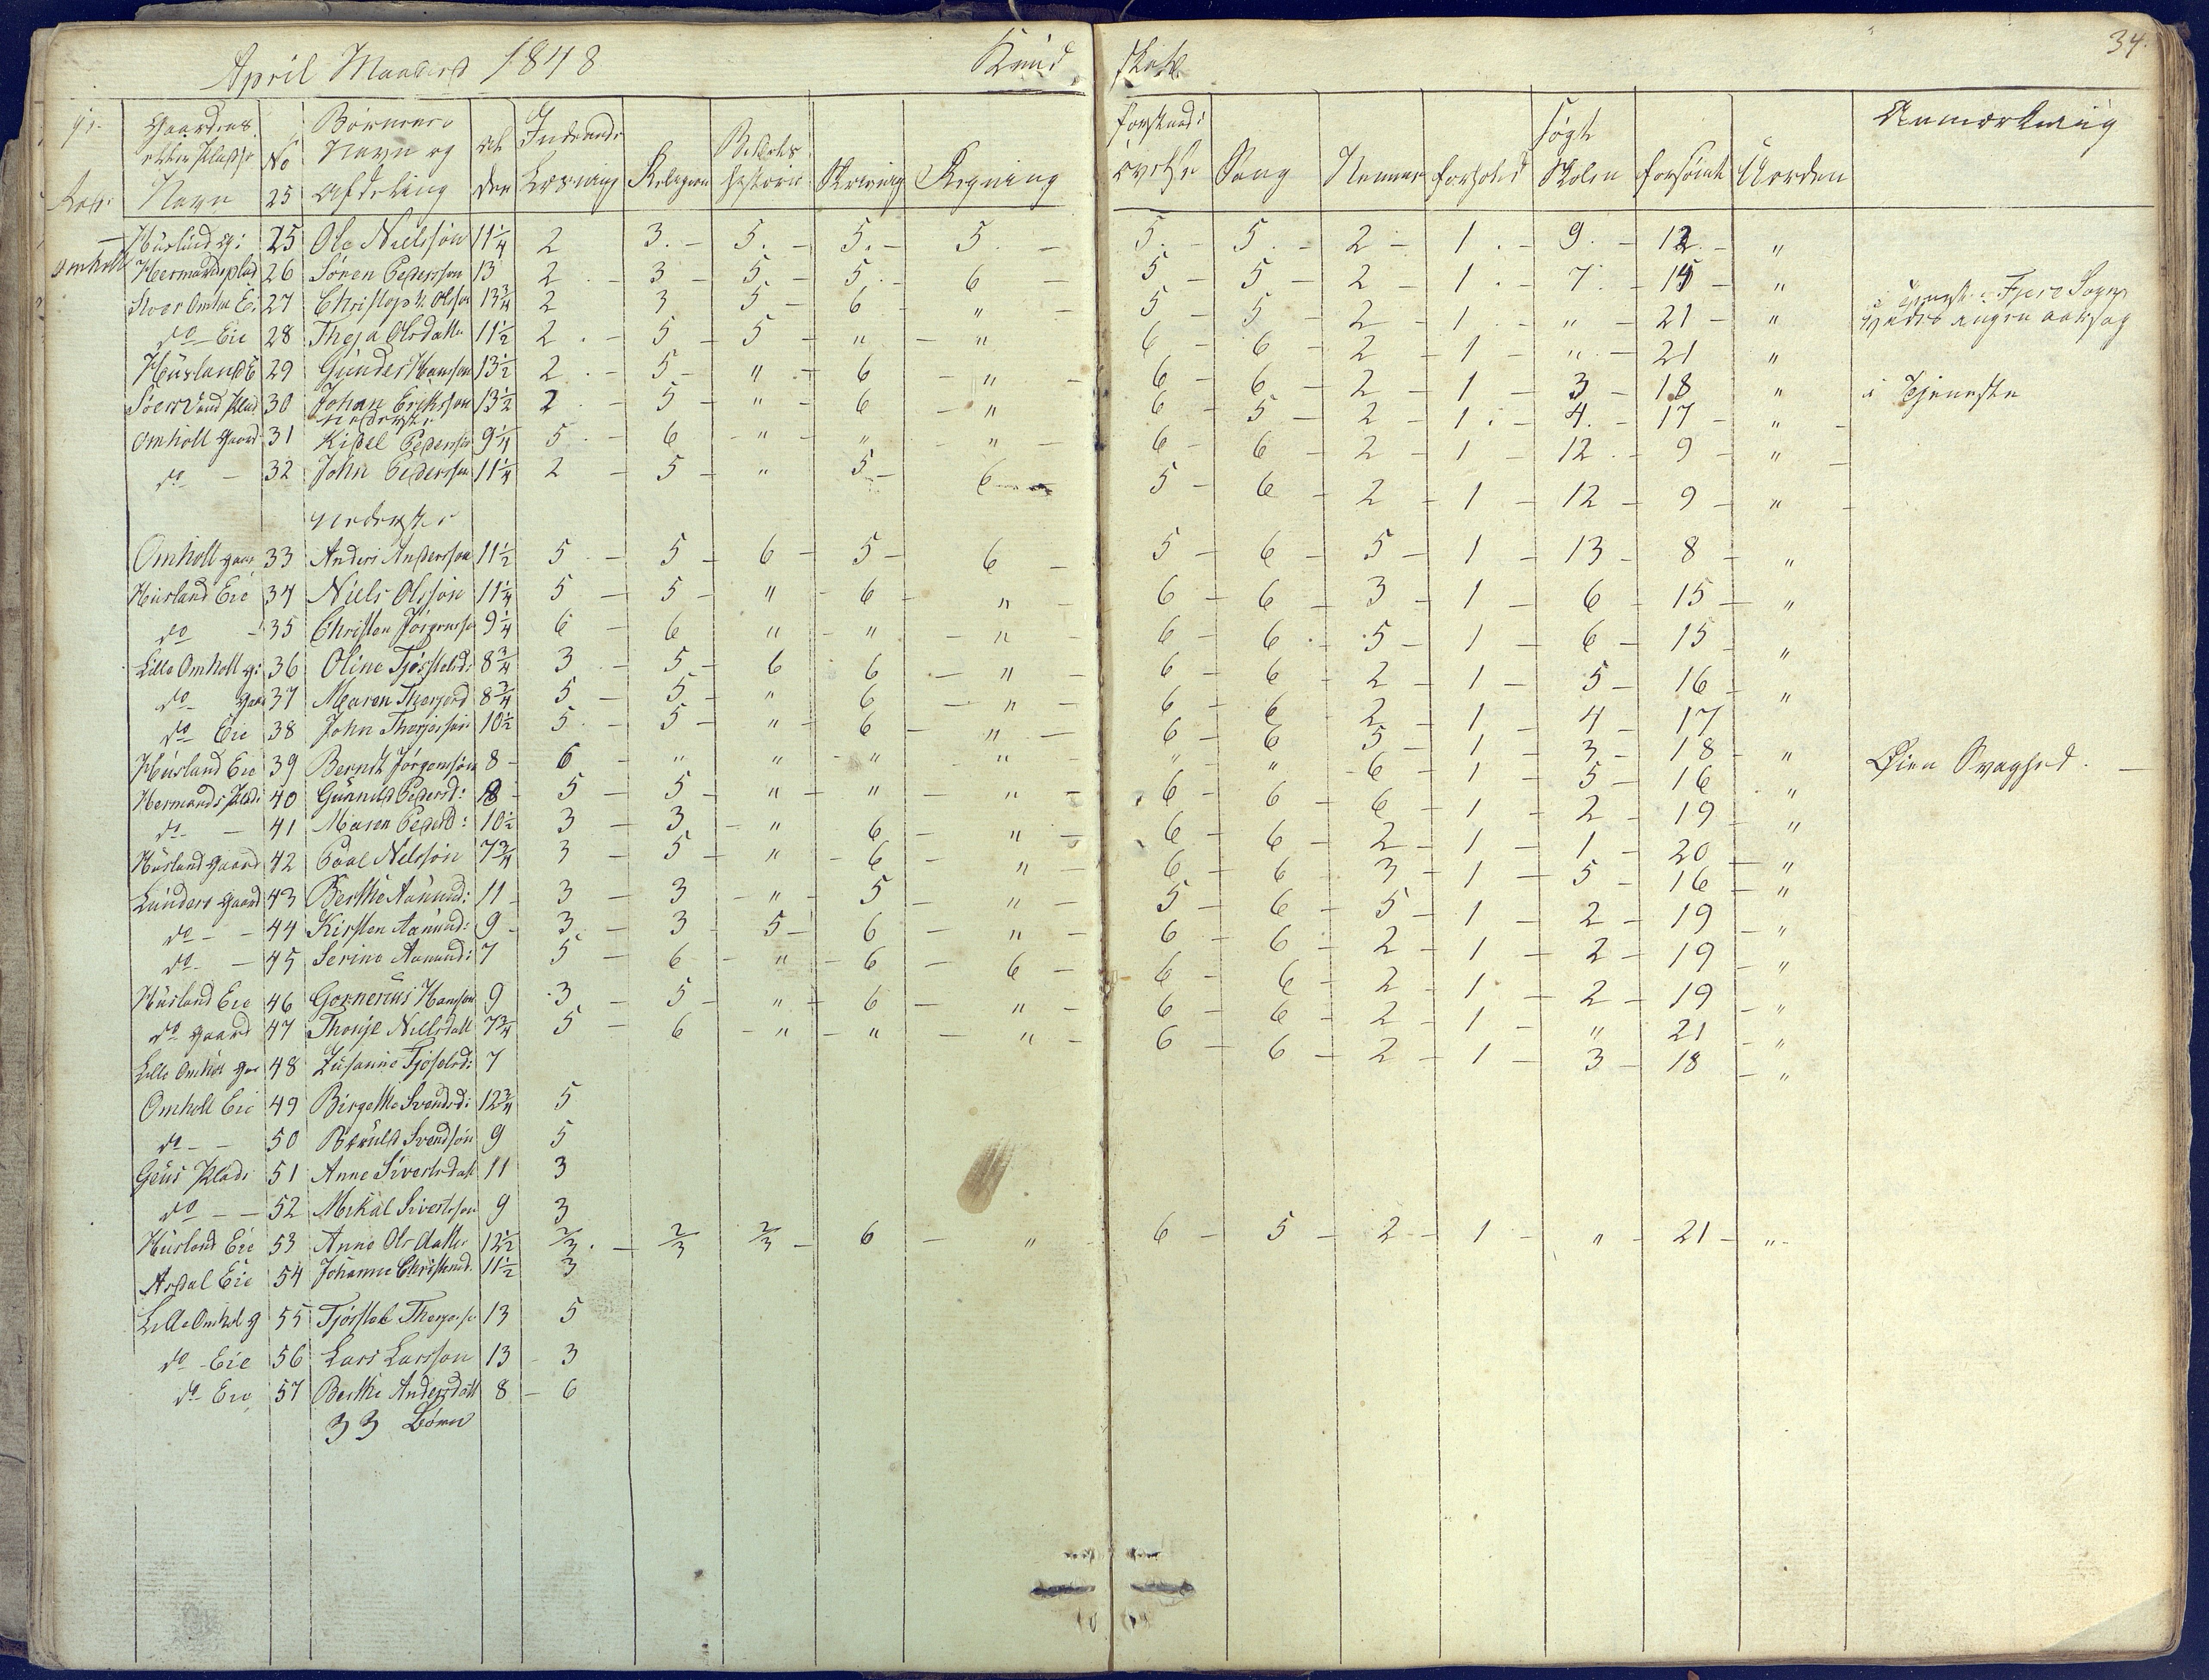 April Maaned 1848 Kund skab 34.
Gaardens eller Pladse Navn No 25 Børnenes Navn og Afdeling Al der Indvendi Læsning Religion Bibels historie Skrivning Regning forstand: øvelse Sang Nemme forhold søgt Skolen forsömt Uorden Anmærkning
Hüsland g: 25 Ole Nielssön 11 1/4 2 3. – 5. – 5. – 5. – 5. – 5. – 2 – 1. – 9. – 12. – "
Omholt Hermandsplad 26 Sören Pedersson 13 2 – 3 – 5 – 5. – 6 – 5 – 5 – 2 – 1. – 7. – 14 – "
Stoer Omhu Ei 27 Christoph. Olsson 13 3/4 2 3 5 – 6 – " – 5 – 5 – 2 – 1 – " – 21 – "
do Eie 28 Theja Olsdatter 11 1/2 2. – 5 – 5 – " – " 6 – 6 – 2 – 1 – " – 21 "
Hüsland E 29 Gunder Hansson 13 1/2 2. – 5 – " – 6 – " – 6 – 6 – 2 – 1 – 3 – 18 " i Tjeneste
Plad 30 Johan Eriksson 13 1/2 2 – 5 – " – 6 – " 6 – 5 – 2 – 1. – 4. – 17 – "
nederste
Omholt Gaard 31 Kittel Pedersson 9 1/4 5. – 6 – " – " – " – 6 – 6 – 2 – 1 – 12. – 9 – "
do – 32 John Pedersson 11 1/4 2 – 5 – " 5 – 6 – 5 – 6 – 2 – 1 – 12 – 9 – "
nederste
Omholt gaar 33 Anders Andersson 11 1/2 5 – 5 – 6 – 5 – 6 – 5 – 6 – 5 – 1 – 13 – 8 – "
Hüsland Eie 34 Niels Olsson 11 1/4 5 – 5 – " – 6 – " – 6 – 6 – 3 – 1 – 6 – 15 – "
do – 35 Christen Jörgensso 9 1/4 6 – 6 " – " – " – 6 – 6 – 5 – 1 – 6 – 15 – "
Lille Omholt g: 36 Oline Tjöstelsd: 8 3/4 3 – 5 – 6 6 – " – 6 – 6 – 2 – 1 – 5 – 16 – "
do gaar 37 Maren Therjerd 8 3/4 5 – 5 – " 6 – " – 6 – 6 – 2 – 1 – 4 – 17
do Eie 38 John Therjersön 10 1/2 5. – 5 – " – 6 – " – 6 – 6 – 5 – 1 – 3 – 18 – "
Hüsland Eie 39 Berndt Jörgensön 8 – 6 – " " – " – " – " – " – 6 – 1 – 5 – 16 – " Øien Svaghed. –
Hermands Plads 40 Gunnild Pedersd: 8 – 5 – 5 – " – " – " – 6 – 6 – 6 – 1 – 2 – 19 – "
do – 41 Maren Pedersd: 10 1/2 3 – 3 – " – 6 – " – 6 – 6 – 2 – 1 – 1 – 20 – "
Hüsland gaard 42 Paal Nielssön 7 3/4 3 – 5 – " – 6 – " – 6 – 6 – 3 – 1 – 5 – 16 – "
Lunders gaard 43 Berthe Aanund: 11 – 3 – 3 – " – 5 – " – 5 – 6 – 5 – 1 – 2 – 19 – "
do – – 44 Kirsten Aanund: 9 – 3. – 3 – 5 – 6 – " – 6 – 6 – 2 – 1 – 2 – 19 – "
do – 45 Serine Aanund: 7 5 – 6 – " – 6 – 6 – 6 – 6 – 2 – 1 – 2 – 19 – "
Hüsland Eie 46 Gornerius Hansson 9 3 – 5 – " – 6 – " – 6 – 6 – 2 – 1 – " – 21 – "
do gaard 47 Thonje Nielsdatt 7 3/4 5 – 6 – " – " – " – 6 – 6 – 2 – 1 – 3 – 18 – "
Lille Omhol gaa 48 Zusanne Tjöstelsd: 7
Omholt Eie 49 Birgethe Svendsd: 12 3/4 5
do – – 50 Svendsön 9 5
Geus Plads 51 Anne Sivertsdatt 11 3
do – – 52 Mikal Sivertsson 9 3
Hüsland Eie 53 Anne Ols datter 12 1/2 2/3. – 2/3 2/3 – 6 – " – 6 – 5 – 2 – 1 – " – 21 – "
Ardal Eie 54 Johanne Christensd. 11 1/2 3
Lille Omhol g 55 Tjöstel Therjerse 13 5
do – Eie 56 Lars Larsson 13 – 3
do Eie 57 Berthe Andersdatt 8 – 6
33 Börn